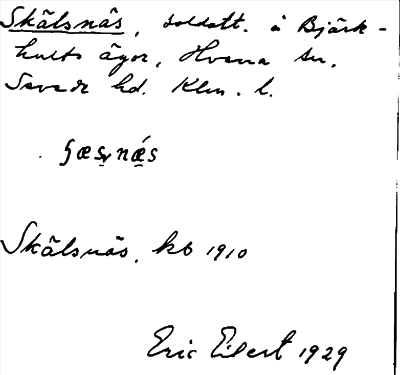 Skälsnäs, soldatt. å Björk-
hults ägor, Hvena sn.
Sevede hd. Klm. l.
ʂæsnǽs
Skälsnäs, kb 1910
Eric Eilert 1929